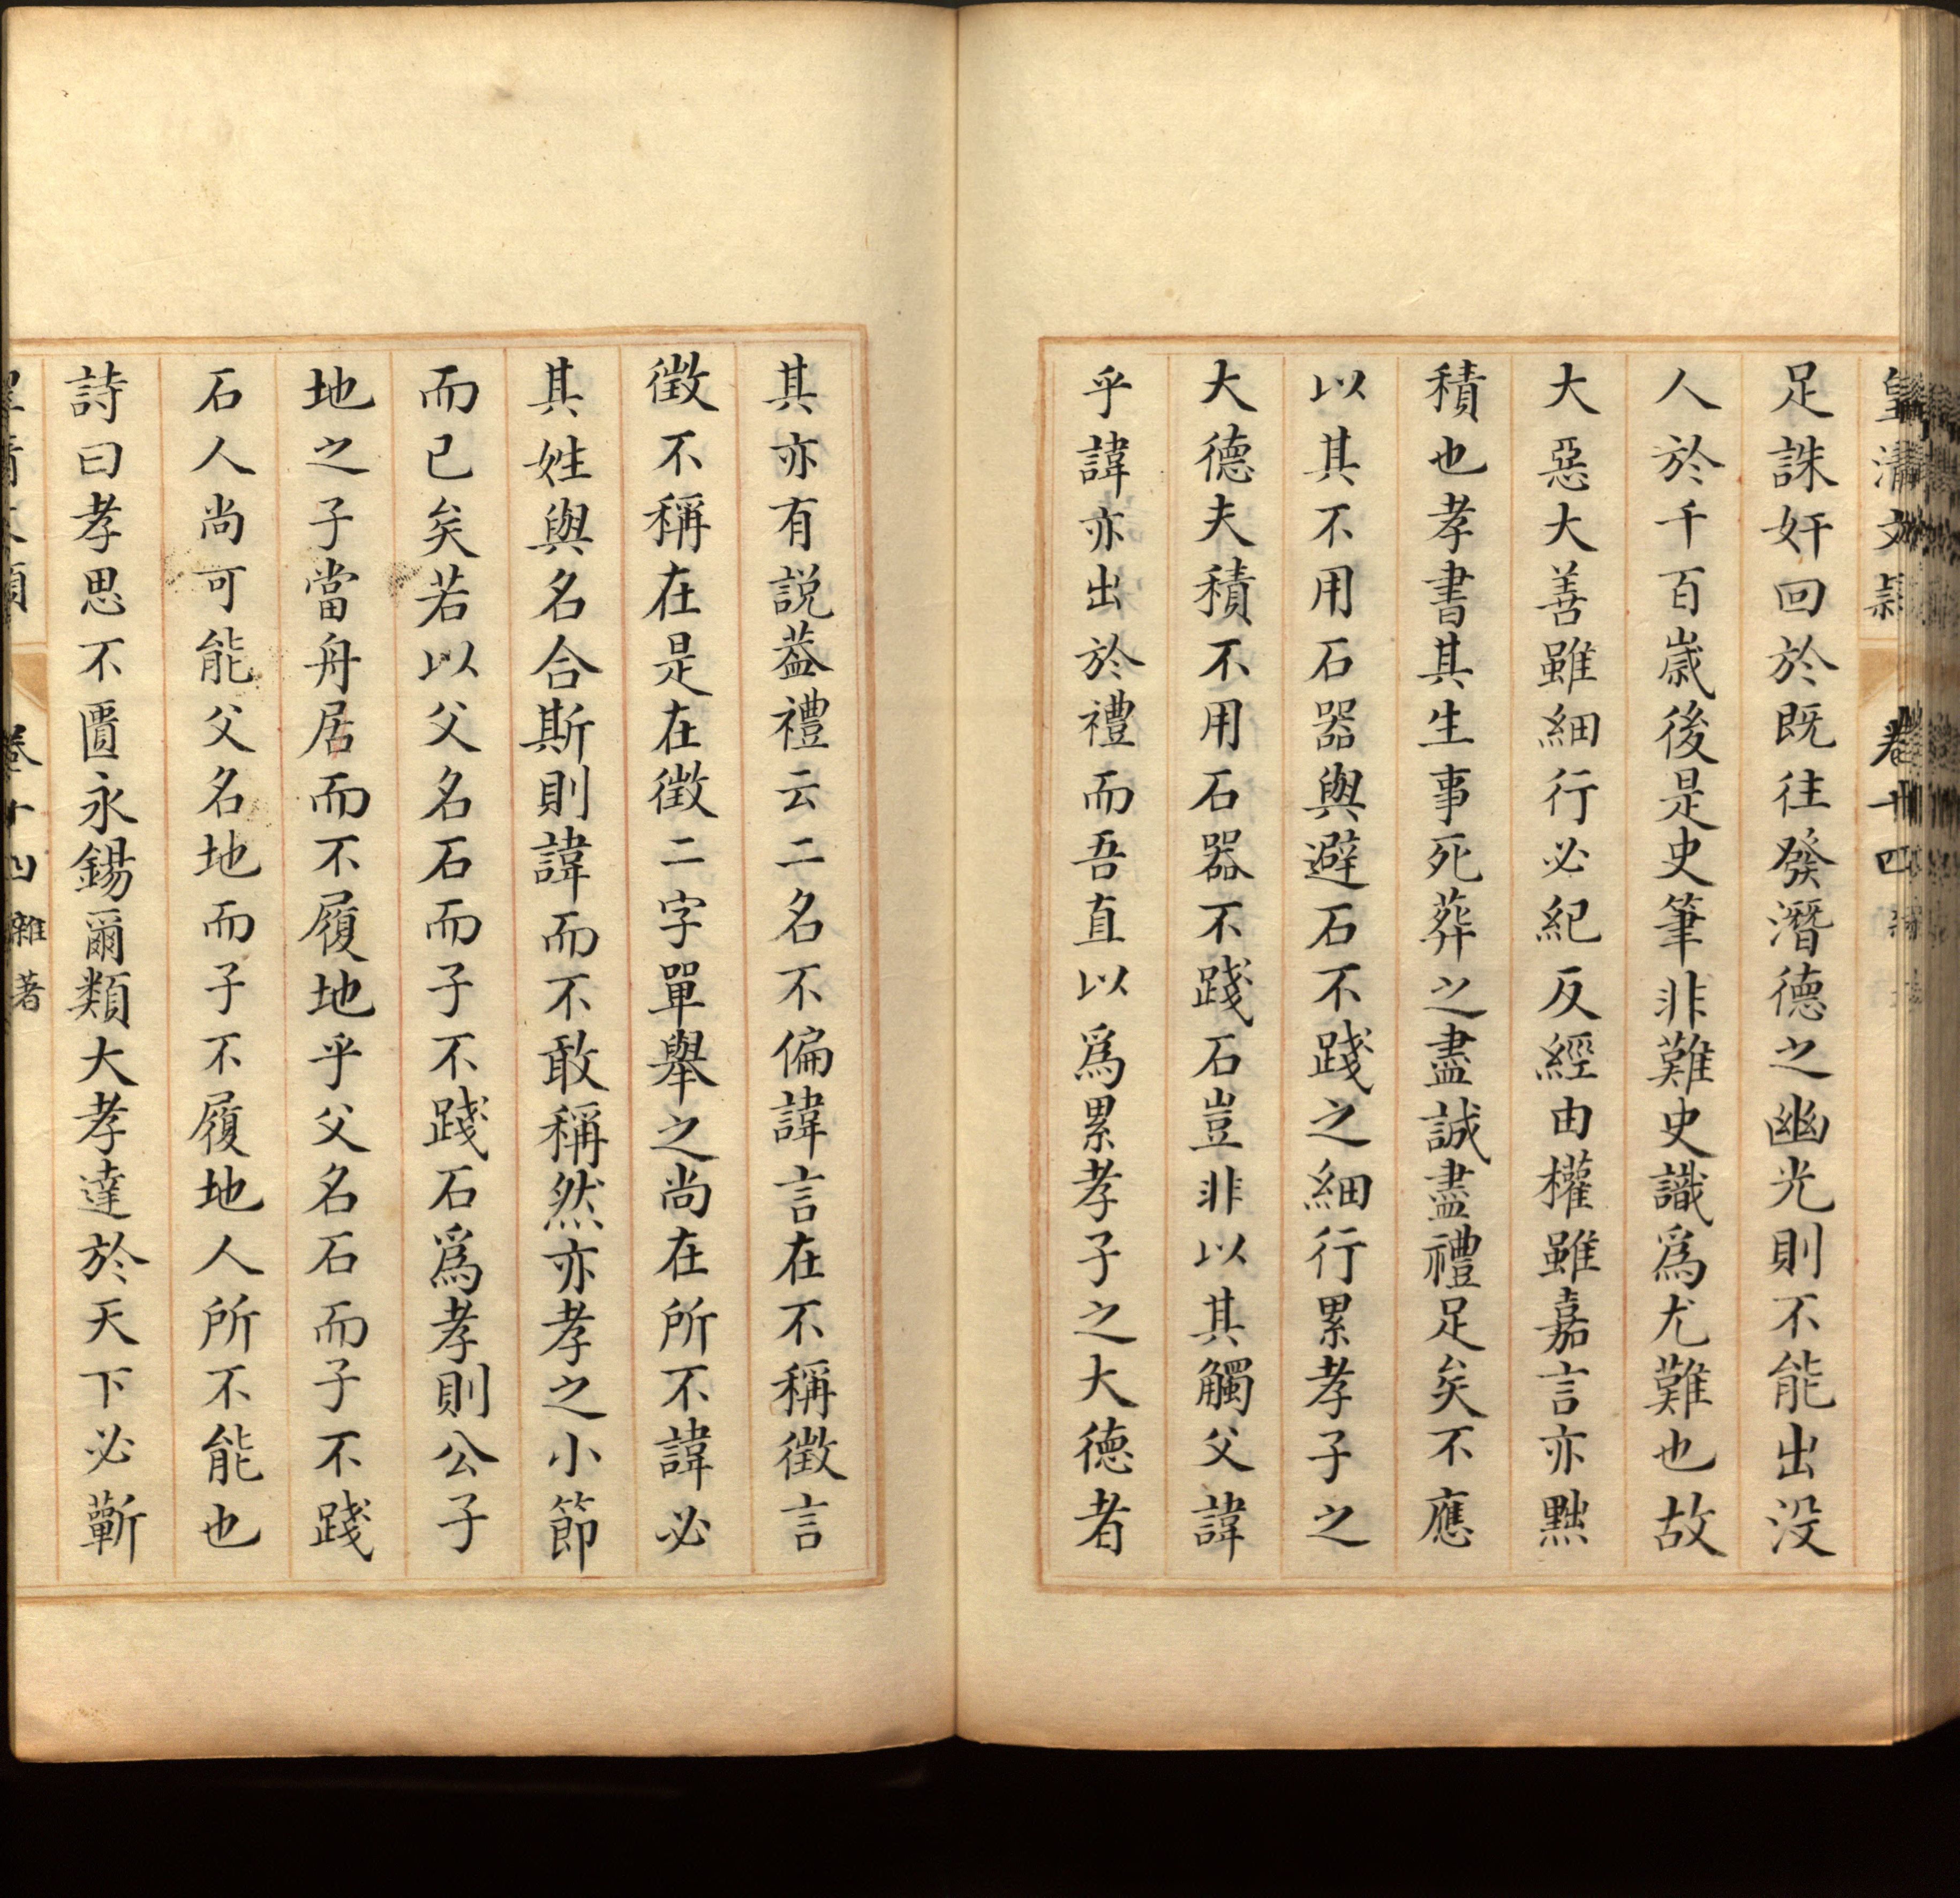 皇清文穎 卷十四
足誅奸回於既往發潛德之幽光則不能出没
人於千百嵗後是史筆非難史識爲尤難也故
大惡大善雖細行必紀反經由權雖嘉言亦黜
積也孝書其生事死葬之盡誠盡禮足矣不應
以其不用石器與避石不踐之細行累孝子之
大德夫積不用石器不踐石豈非以其觸父諱
乎諱亦出於禮而吾直以爲累孝子之大德者
其亦有説葢禮云二名不偏諱言在不稱徴言
徴不稱在是在徴二字單舉之尚在所不諱必
其姓與名合斯則諱而不敢稱然亦孝之小節
而已矣若以父名石而子不踐石爲孝則公子
地之子當舟居而不履地乎父名石而子不踐
石人尚可能父名地而子不履地人所不能也
詩曰孝思不匱永錫爾類大孝達於天下必蘄
卷十四 雜著